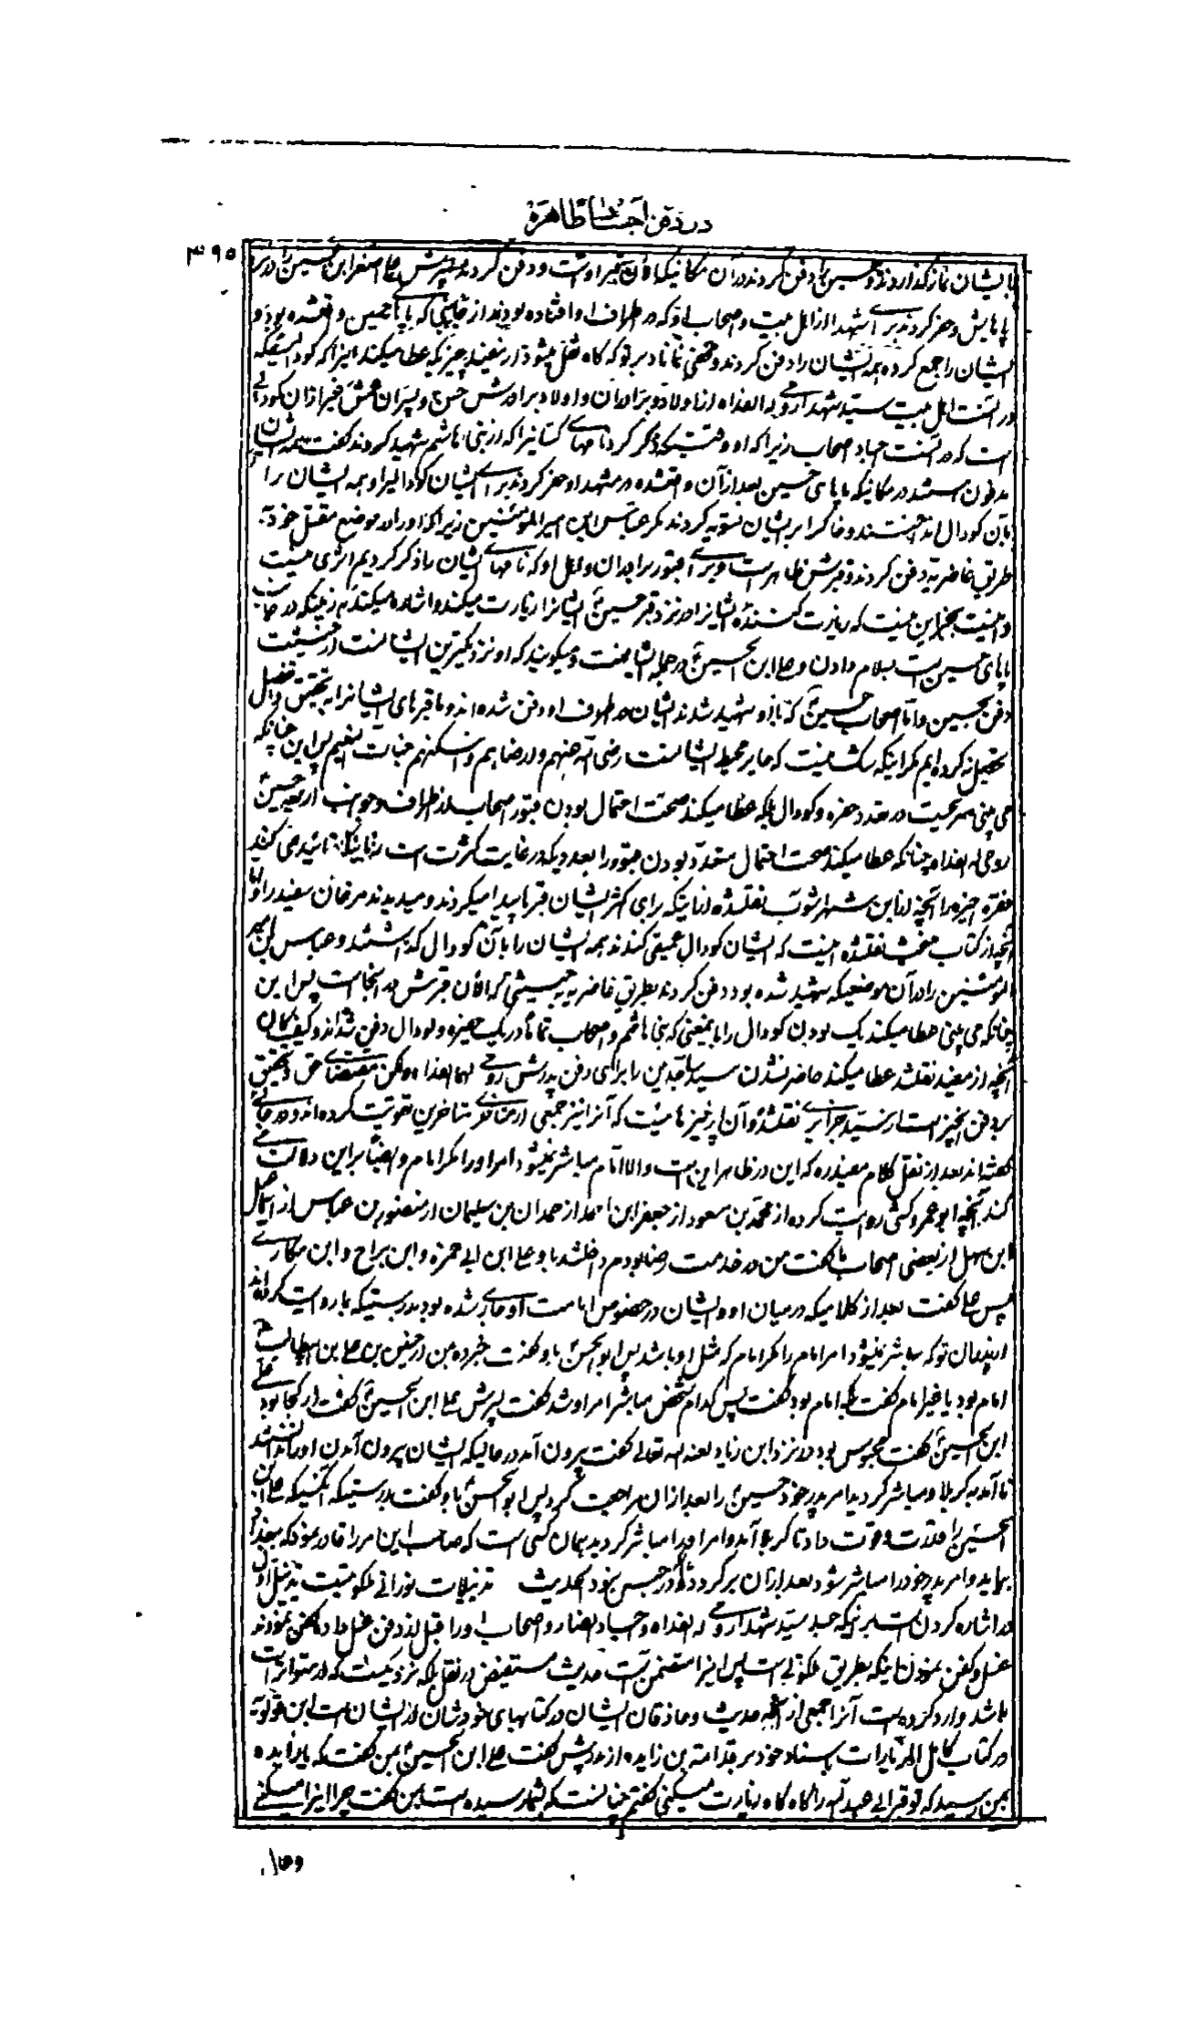 در دفن اجساد طاهره
۳۹۵
بایشان نماز گذاردند و حسین را دفن کردند در آن مکانیکه الآن قبر اوست و دفن کردند پسرش علی اصغر ابن حسین را در نزد
پاهایش و حفر کردند برای شهدا از اهل بیت و اصحاب او که در اطراف او افتاده بودند از جایی که پاپای حسین واقعشده بود و
ایشان را جمع کرده همه ایشان را دفن کردند و مخفی نماناد بر تو که گاه نقل میشود از مفید چیزیکه عطا میکند اینرا که گودالیکه
در آنست اهل بیت سید شهدا روحی له الفداه از اولاد و برادران و اولاد برادرش حسن و پسران عمش غیر از آن گودالی
است که در آنست اجساد اصحاب زیرا که او وقتیکه ذکر کرد نامهای کسانیرا که از بنی هاشم شهید کردند گفت همه ایشان
مدفون هستند در مکانیکه پاپای حسین بعد از آن واقعشده در مشهد او حفر کردند برای ایشان گودالیرا و همه ایشان را
بآن گودال انداختند و خاک را بر ایشان تسویه کردند مگر عباس ابن امیرالمؤمنین زیرا که او را در موضع مقتل خود به
طریق غاضریه دفن کردند و قبرش ظاهر است و برای قبور برادران و اهل او که نامهای ایشان را ذکر کردیم اثری نیست
و نیست بجز این نیست که زیارت کننده ایشانرا در نزد قبر حسین ایشانرا زیارت میکند و اشاره میکند به زمینیکه در جانب
پاپای حسین است بسلام دادن و علی ابن الحسین در جمله ایشانست و میگویند که او نزدیکترین ایشانست از حیثیت
دفن بحسین و اما اصحاب حسین که با او شهید شدند ایشان در اطراف او دفن شده اند و ما قبرهای ایشانرا به تحقیق و تفصیل
تحصیل نه کرده ایم مگر اینکه شک نیست که حایر محیط ایشانست رضی الله عنهم و ارضاهم و اسکنهم جنات النعیم پس این چنانکه
می بینی صریحست در تعدد حفره و گودال بلکه عطا میکند صحت احتمال بودن قبور اصحاب از اطراف و جوانب اربعه حسین
روحی له الفداه چنانکه عطا میکند صحت احتمال متعدد بودن قبور را بعدیکه در غایت کثرت است
فقره اخیره را آنچه از ابن شهر آشوب نقلشده از اینکه برای اکثر ایشان قبر پیدا میکردند و میدیدند مرغان سفید را و اما
آنچه از کتاب منتخب نقلشده اینست که ایشان گودال عمیقی کندند همه ایشان را بآن گودال گذاشتند و عباس ابن امیر
المؤمنین را در آن موضعیکه شهید شده بود دفن کردند بطریق غاضریه به حیثیتی که الآن قبرش در آنجاست پس این
چنانکه می بینی عطا میکند یک بودن گودال را بمعنی که بنی هاشم و اصحاب تماما در یک حفیره و گودال دفن شده اند و کیف کان
آنچه از مفید نقلشد عطا میکند حاضر نشدن سید الساجدین را برای دفن پدرش روحی لهما الفداه و لکن مقتضای حق و تحقیق
بر وفق آنچیز است از سید جزایری نقلشده و آن از چیزهائیست که آنرا نیز جمعی از متاخرین تقویت کرده اند و در جائی
گفته اند بعد از نقل کلام مفید ره که این در ظاهر این است و الا امام مباشر نمیشود امر او را مگر امام و ایضا بر این دلالت می
کند آنچه ابو عمرو کشی روایت کرده از محمد بن مسعود از جعفر ابن احمد از حمدان بن سلیمان از منصور بن عباس از اسماعیل
ابن سهل از بعضی اصحاب ما گفت من در خدمت رضا بودم داخلشد باو علی ابن ابی حمزه و ابن سراج و ابن مکاری
پس علی گفت بعد از کلامیکه در میان او و ایشان در خصوص امامت او جاری شده بود بدرستیکه ما روایت کرده ایم
از پدران تو که مباشر نمیشود امر امام را مگر امام که مثل او باشد پس ابو الحسن باو گفت خبر ده بمن از حسین بن علی بن ابیطالب
امام بود یا غیر امام گفت بلکه امام بود گفت پس کدام شخص مباشر امر او شد گفت پسرش علی ابن الحسین گفت در کجا بود علی
ابن الحسین گفت محبوس بود در نزد ابن زیاد لعنه الله تعالی گفت بیرون آمد در حالیکه ایشان بیرون آمدن او را ندانستند
تا آمد به کربلا و مباشر گردید امر پدر خود حسین را بعد از آن مراجعت کرد پس ابو الحسن باو گفت بدرستیکه آنکسیکه علی ابن
الحسین را قدرت و قوت داد تا کربلا آمد و امر او را مباشر گردید همان کسی است که صاحب این امر را قادر نمود که ببغداد
بیاید و امر پدر خود را مباشر شود بعد از آن برگردد نه در حبس بود الحدیث تذنیلات نورانی ملکوتیت تذنیل اول
در اشاره کردن است براینکه جسد سید شهدا روحی له الفداه و اجساد انصار و اصحاب او را قبل از دفن غسل داد و کفن نمودند
غسل و کفن نمودن اینکه بطریق ملکوتی است پس اینرا متضمن است حدیث مستفیض در نقل بلکه نزدیکست که از متواترات
باشد وارد کرده است آنرا جمعی از ائمه حدیث و حاذقان ایشان در کتابهای خودشان از ایشان است ابن قولویه
در کتاب کامل الزیارات باسناد خود بر قدامة بن زایده از پدرش گفت علی ابن الحسین بمن گفت که یا زایده
بمن رسید که تو قبر ابی عبد الله را گاه گاه زیارت میکنی گفتم چنانست که بشما رسیده است بمن گفت چرا اینرا میکنی
و حال